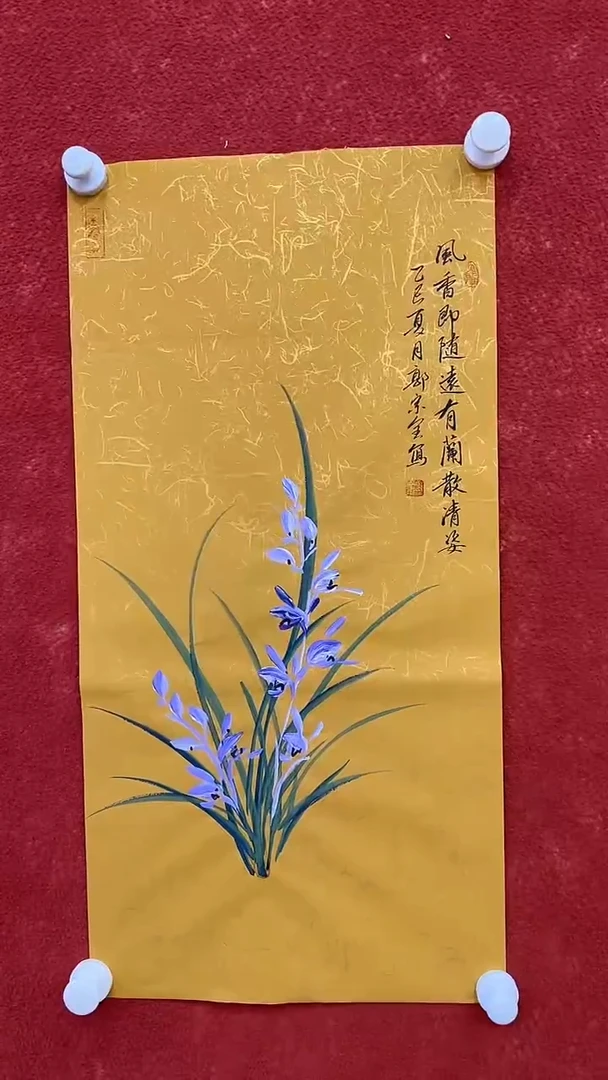 風香即随遠有蘭散清姿
乙巳夏月郎宗全寫